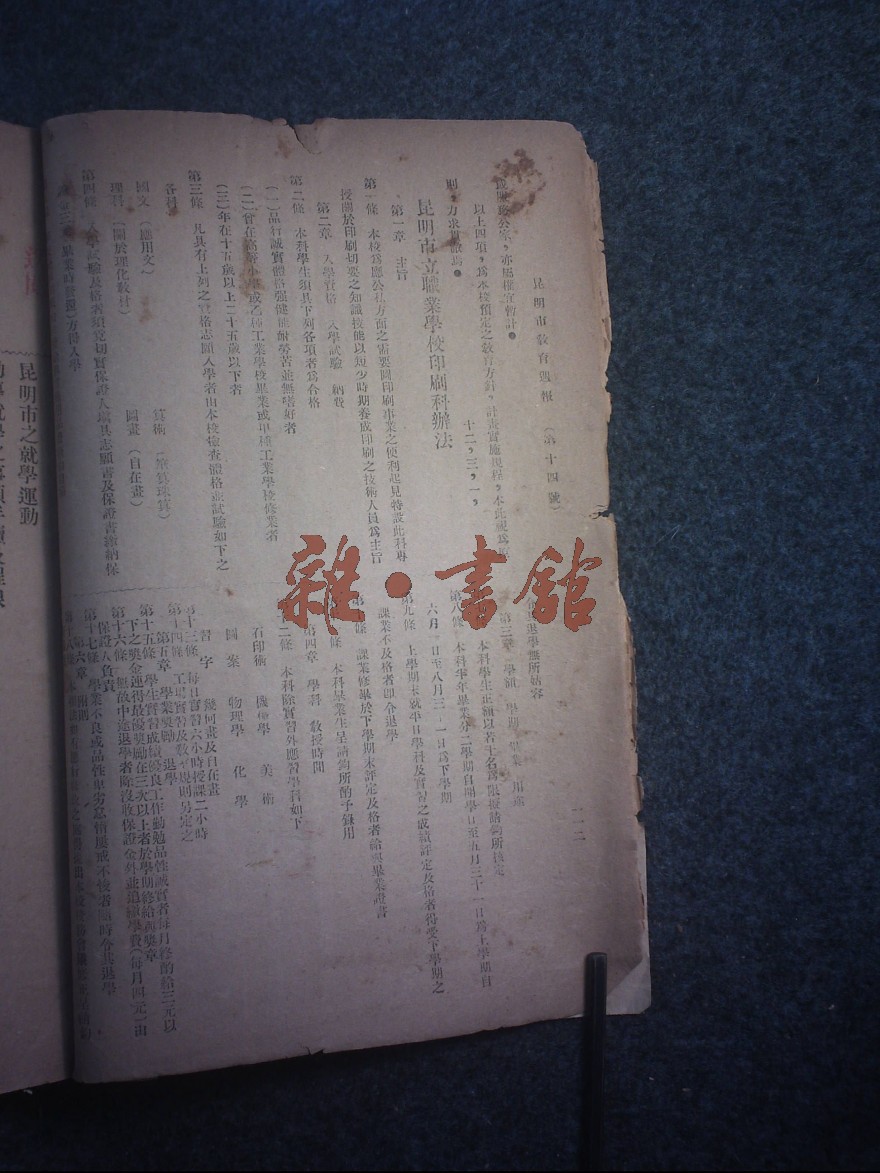 昆明市教育週報 (第十四號)
一二
亦屬權宜暫計。
以上四項，爲本校預定之教育方針，計畫實施規程，本此視爲
十二，三，一，
昆明市立職業學校印刷科辦法
第一章 主旨
第一條 本校爲應公私方面之需要圖印刷事業之便利起見特設此科專
授關於印刷切要之知識技能以短少時期養成印刷之技術人員爲主旨
第二章 入學資格 入學試驗 納費
第二條 本科學生須具下列各項者爲合格
(一)品行誠實體格强健能耐勞苦並無嗜好者
(二)曾在高等小學或乙種工業學校畢業或甲種工業學校修業者
(三)年在十五歲以上二十五歲以下者
第三條 凡具有上列之資格志願入學者由本校檢查體格並試驗如下之
各科
國文 (應用文) 算術 (筆算珠算)
理科 (關於理化教材) 圖畫 (自在畫)
第四條 入學試驗及格者須覓切實保證人填具志願書及保證書繳納保
方得入學
第三章 學額 學期 畢業
本科學生正額以若干名爲限擬請鈞所核定
第八條 本科半年畢業分二學期自開學日至五月三十一日爲上學期自
六月一日至八月三十一日爲下學期
第九條 上學期末就平日學科及實習之成績評定及格者得受下學期之
課業不及格者即令退學
課業修畢於下學期末評定及格者給與畢業證書
本科畢業生呈請鈞所酌予錄用
第四章 學科 教授時間
本科除實習外應習學科如下
石印術 機械學 美術
圖案 物理學 化學
習字 幾何畫及自在畫
第十三條 每日實習六小時授課二小時
第十四條 工場實習及教室規則另定之
第五章 學業獎勵 退學
第十五條 學生實習成績優良工作勤勉品性誠實者每月終酌給三元以
下之奬金連得最優奬勵在三次以上者於學期終給與奬章
第十六條 無故中途退學者除沒收保證金外並追繳學費(每月四元)由
保證人負責
第十七條 學業不良或品性卑劣怠惰屢戒不悛者隨時令其退學
第六章 附則
昆明市之就學運動
雜·書館